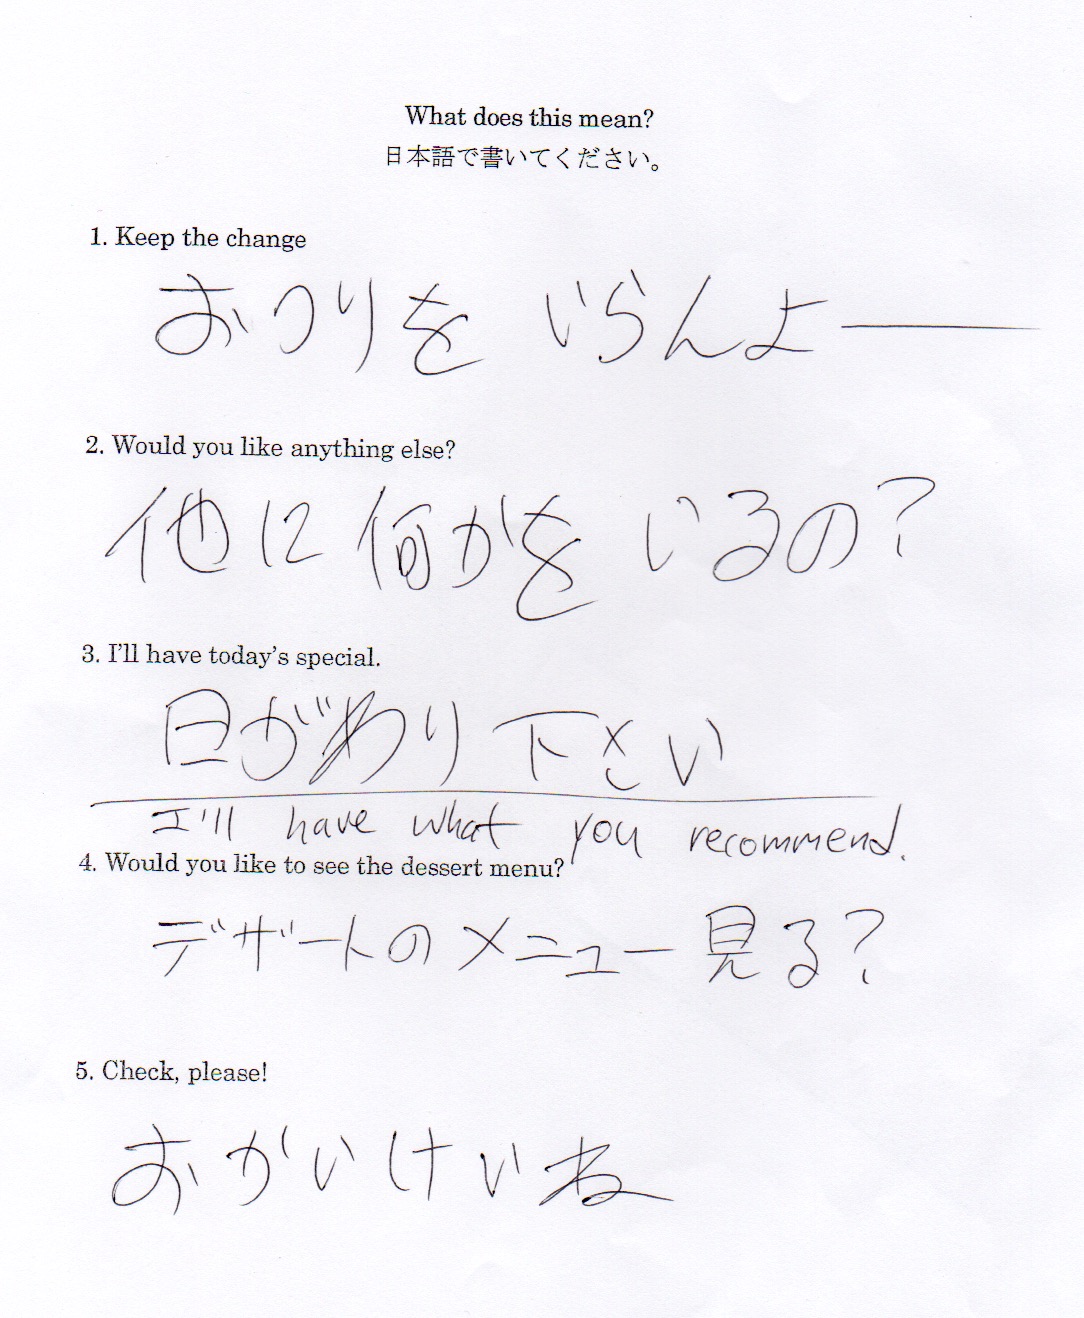 What does this mean?
日本語で書いてください。
1. Keep the change
おつりを いらんよー
2. Would you like anything else?
他に何かをいるの?
3. I'll have today's special.
日がわり下さい
I'll have what you recommend.
4. Would you like to see the dessert menu?
デザートのメニュー見る?
5. Check, please!
おかいけいね